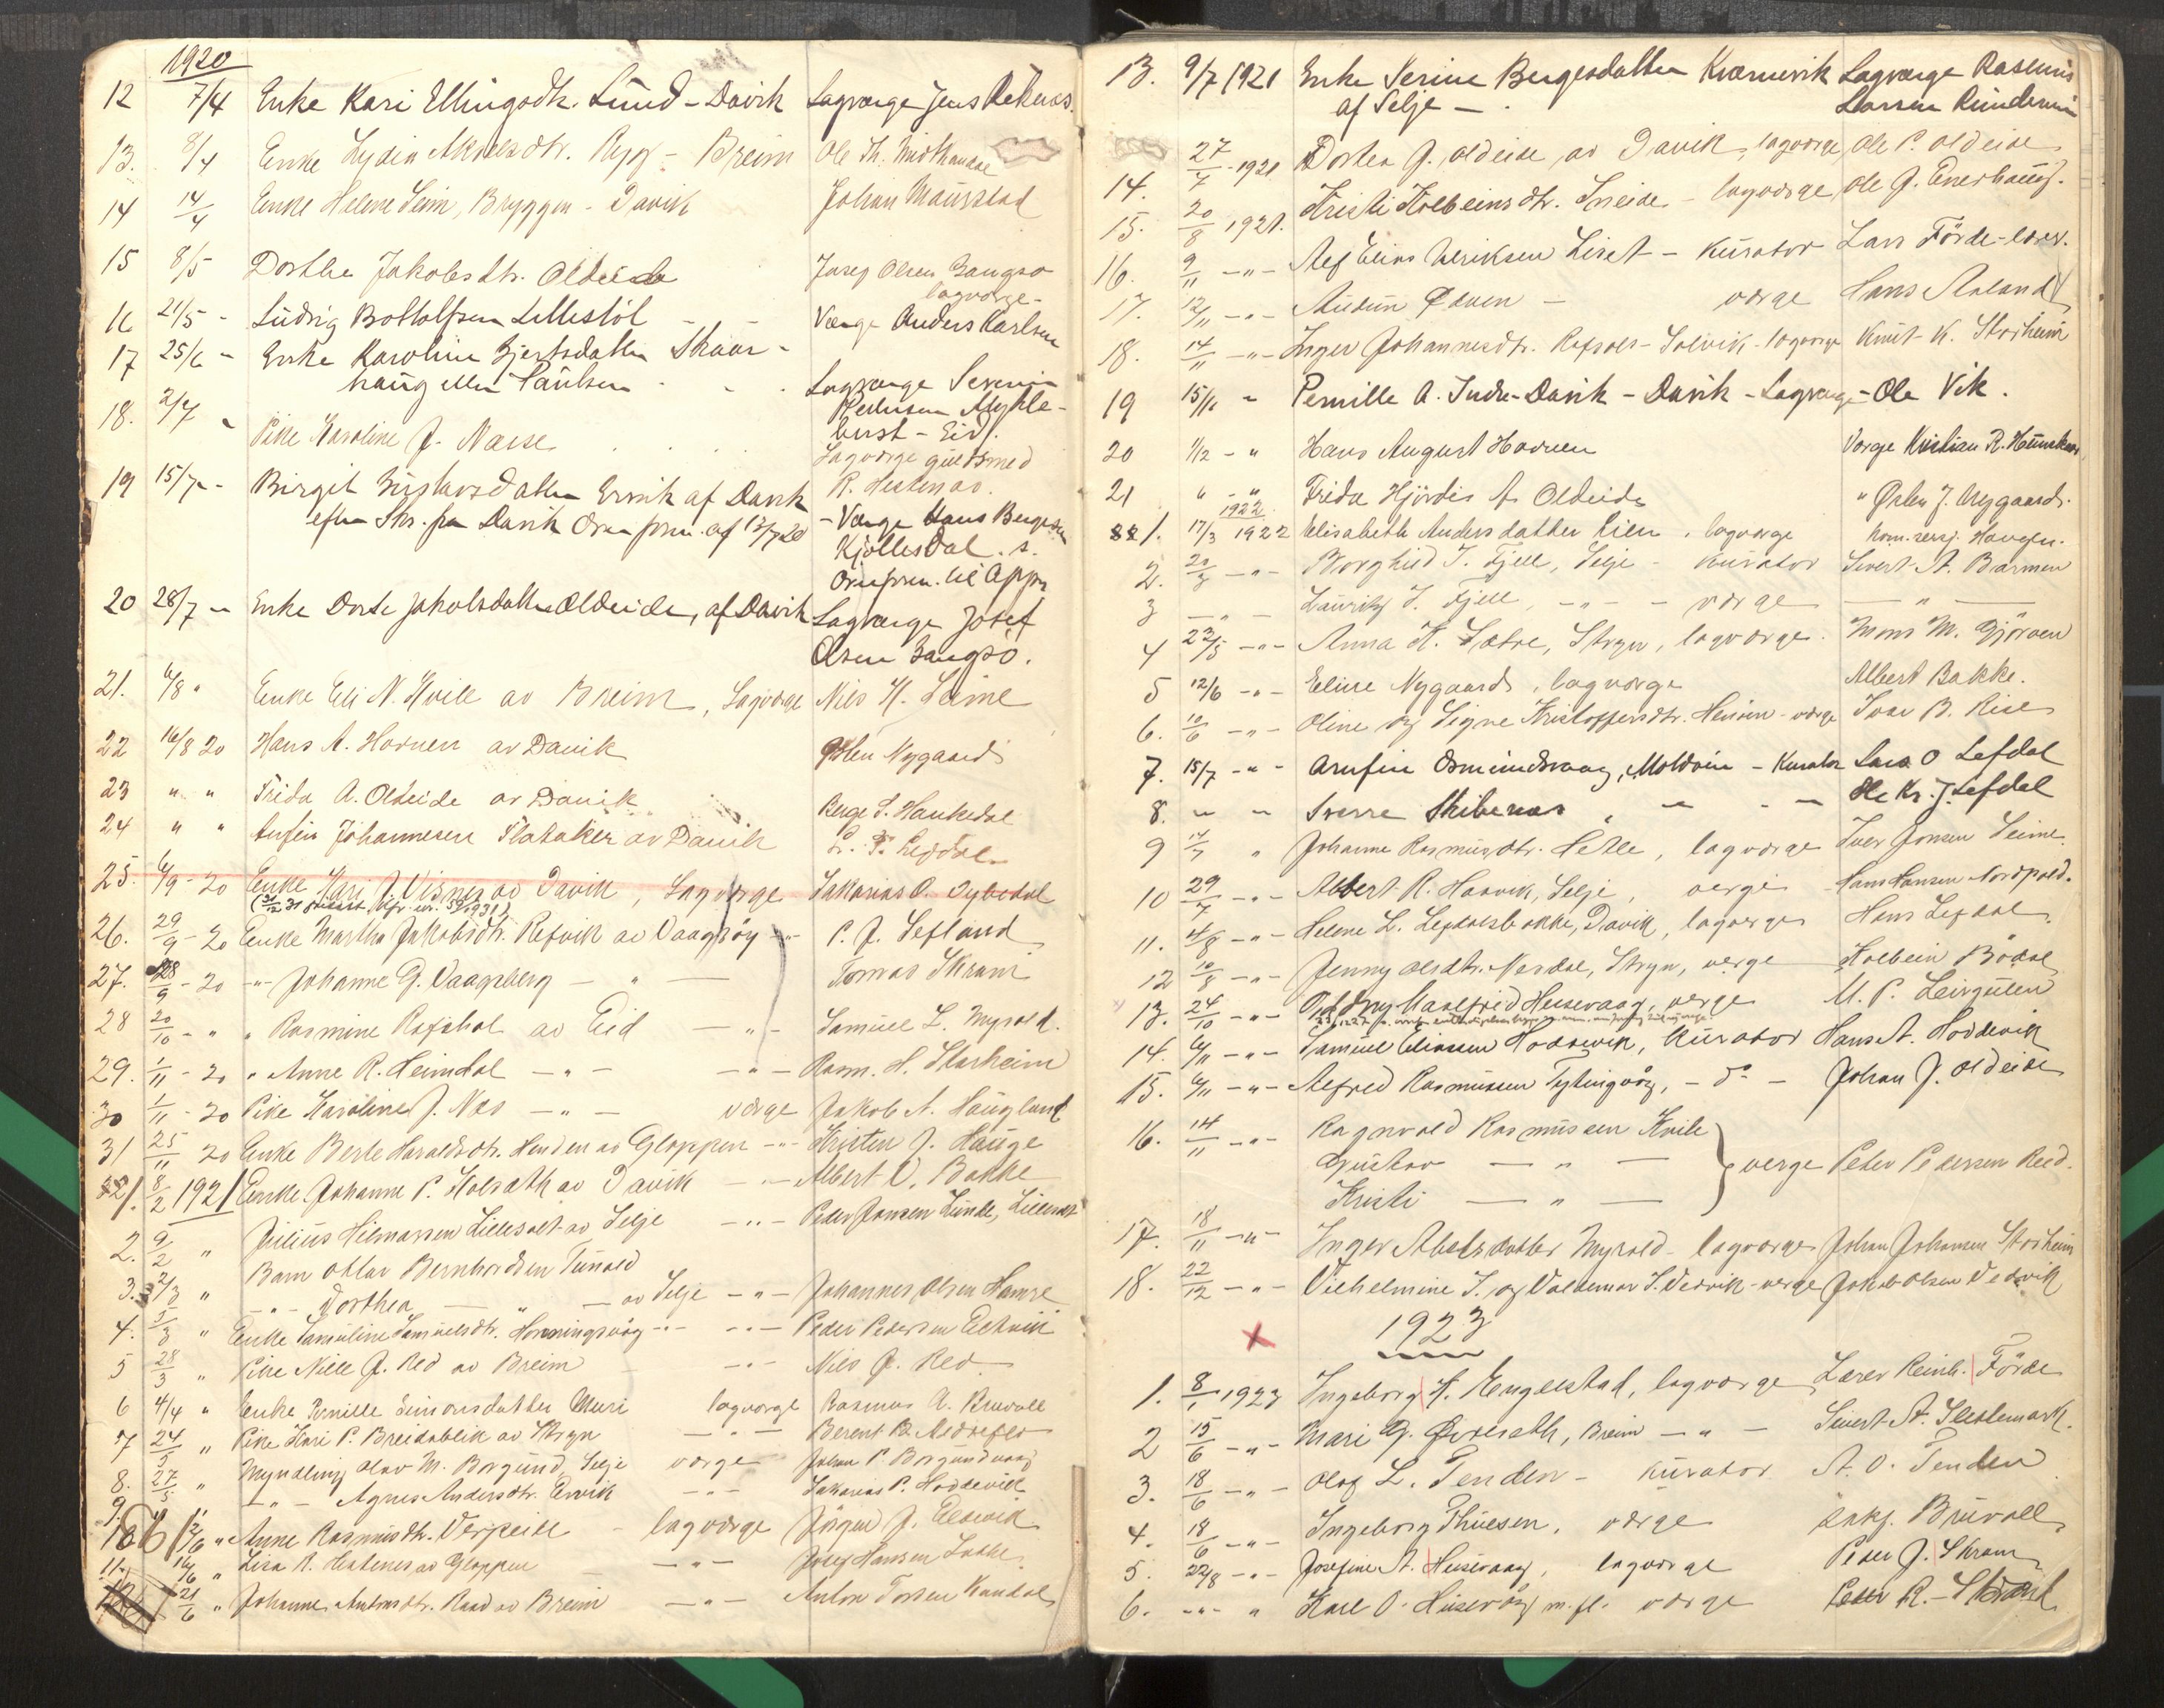 1920
12 7/4 Enke Kari Ellingsdtr. Lund - Davik Lagværge Jens
13. 8/4 Enke Lydia Rygg - Breim Ole Th.
14 14/4 Enke Helene Seim, Bryggen - Davik Johan Maurstad
15 8/5 Dorthe Jakobsdtr. Oldeide Josep Olsen Gangsø
lagværge -
16 21/5 - Ludvig Bottolfsen Lillestöl - - Værge Anders Karlsen
17 25/6 - Enke Karoline Gjertsdatter Skaar -
haug eller Paulsen - - . Lagværge Severin
Pedersen Mykle-
18. 2/7 - Pike Karoline J. Naese . . . . bust - Eid.
Lagværge gullsmed
19 15/7 - Birgit Gustavsdatter Ervik af Davik R. Hestenæs.
efter Skr. fra Davik af 12/7 20 - Værge Hans Bergesen
Kjøllesdal . s.
til Oppn
20 28/7 - Enke Dorte Jakobsdatter Oldeide, af Davik Lagværge Josef
Olsen Gangsø.
21. 6/8 " Enke Eli N. Kvile av Breim, Lagværge Nils H. Seime
22 16/8 20 Hans A. Hovnen av Davik Østen Nygaard
23 " " Frida A. Oldeide av Davik Berge S. Haukedal
24 " " Arnfin Johannesen Flataker av Davik L. P. Lefdal
25. 6/9 - 20 Enke Kari J. Visnes av Davik, Lagværge Sakarias O. Dybedal
26. 29/9 - 20 Enke Martha Jakobsdtr. Refvik av Vaagsöy - " - P. J. Sefland
27. 28/9 - 20 - " - Johanne G. Vaagsberg - " - Tomas Skram
28 20/10 - " " Rasmine Rafshol av Eid - " - Samuel L. Myrold.
29. 1/11 - 20 " Anne R. Heimdal - " - - " - Rasm. H. Starheim
30 1/11 - 20 Pike Karoline J. Nos - " - værge Jakob A. Haugland
31 25/11 20 Enke Berte Haraldsdtr. Henden av Gloppen - " - Kristen J. Hauge
1. 8/2 1921 Enke Johanne P. Holsæth av Davik - " - Albert O. Bakke
2. 9/2 " Julius Hilmarsen Lillesæt av Selje - " - Peder Jansen Lunde,
Barn Ottar Bernhardsen Tunold
3. 2/3 " - " - Dorthea - " - av Selje - " - Johannes Olsen Hamre
4. 5/3 " Enke Samueline Samuelsdtr. Honningsvåg - " - - " - Peder Pedersen
5 28/3 " Pike Nille J. Red av Breim - " - Nils J. Red
6 4/4 " Enke Pernille Simonsdatter Muri lagværge Rasmus A. Bruvoll
7 24/5 " Pike Kari P. Breidablik av Stryn - " - Berent B.
8. 27/5 " Myndling Olav M. Borgund, Selje værge Johan P. Borgundvaag
9. - " - Agnes Andersdtr. Ervik - " - Sakarias P. Hoddevik
10 2/6 " Anne Rasmusdtr. Verpeide - lagværge Jörgen J.
11. 16/6 " Lisa R. Hestenes av Gloppen - " - Josef Hansen
21/6 " Johanne Antonsdtr. Raad av Breim - " - Anton Tomsen Kandal
13. 9/7 1921 Enke Serine Bergesdatter Kvarnevik Lagværge Rasmus
af Selje - . Larsen
14. 27/7 1921 Dortea J. Oldeide av Davik, lagværge Ole P. Oldeide
15. 20/8 1921. Kristi Kolbeinsdtr. - lagværge Ole J. Enerhaug.
16. 9/11 - " - Alf Elias Ulriksen Liset - Kurator Lars Förde - lærer.
17. 12/11 - " - Audun - værge Hans Aaland
18. 14/11 - " - Inger Johannesdtr. - lagværge Knut K. Storheim
19 15/11 " Pernille A. Indre-Davik - Davik - Lagværge - Ole Vik.
20 1/12 - " Hans August Hovnen Værge Kristian R.
21 " - " Frida Hjördis A. Oldeide " Østen J. Nygaard.
1922
1. 17/3 1922 Elisabeth Andersdatter Lien, lagværge
2. 20/3 - " - Borghild J. Fjell, Selje - Kurator Sivert A. Barmen
3 - " - Lauritz J. Fjell, - " - - værge - " -
4 22/5 - " - Anna H. Sætre, Stryn, lagværge. Mons M. Gjörven
5 12/6 - " - Eline Nygaard, lagværge Albert Bakke.
6. 10/6 - " - Oline og Signe Kristoffersdtr. - værge Ivar B. Rise
7. 15/7 - " - Arnfin Osmundsvaag, Moldöen - Kurator Lars O Lefdal
8. " " Sverre Skibenes " - - Ole Kr. J. Lefdal
9 14/7 " Johanne Rasmusdtr. Hetle, lagværge Iver Jonsen Seime
10 29/7 - " - Albert R. Hoevik, Selje, verge Hans Hansen Nordpold.
11. 4/8 - " - Helene L. Lefdalsbakke, Davik, lagverge Hans Lefdal
12 10/8 - " - Jenny Olsdtr. Nesdal, Stryn, verge Kolbein Bödal
13. 24/10 - " - Oddny Maalfrid Husevaag, verge M. P. Leirgulen
14. 6/11 - " - Samuel Eliassen Hoddevik, Kurator Hans A. Hoddevik
15. 6/11 - " - Alfred Rasmussen Tytingvåg, - do - Johan J. Oldeide
16. 14/11 - " - Ragnvald Rasmussen Kvile
Gustav - " - verge Peter Pedersen Reed.
Kristi - " -
17. 18/11 - " - Inger Abelsdatter Myrold - lagværge Johan Johansen Storheim
18. 22/12 - " - Vilhelmine S. og Valdemar S. Vedvik - verge Jakob Olsen Vedvik
1923
1. 8/1 1923 Ingeborg H. Engelstad, lagværge Lærer Reinh. Förde
2 15/6 - " - Mari G. Øvreseth, Breim - " - Sivert A. Slettemark.
3. 18/6 - " - Olaf L. Tenden - Kurator A. O. Tenden
4. 18/6 - " - Ingeborg Thuesen, værge sakf. Bruvoll
5. 22/8 - " - Josefine A. Husevaag, lagværge Peder J. Skram
6. - " - " Karl O. Husevåg m. fl. værge Peder R. - Strand